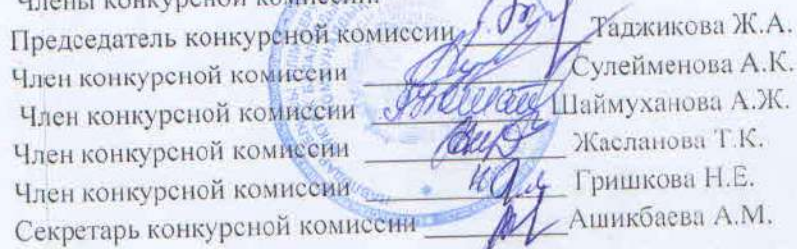 Члены конкурсной комиссии:
Председатель конкурсной комиссии ________ Таджикова Ж.А.
Член конкурсной комиссии ________ Сулейменова А.К.
Член конкурсной комиссии ________ Шаймуханова А.Ж.
Член конкурсной комиссии ________ Жасланова Т.К.
Член конкурсной комиссии ________ Гришкова Н.Е.
Секретарь конкурсной комиссии ________ Ашикбаева А.М.